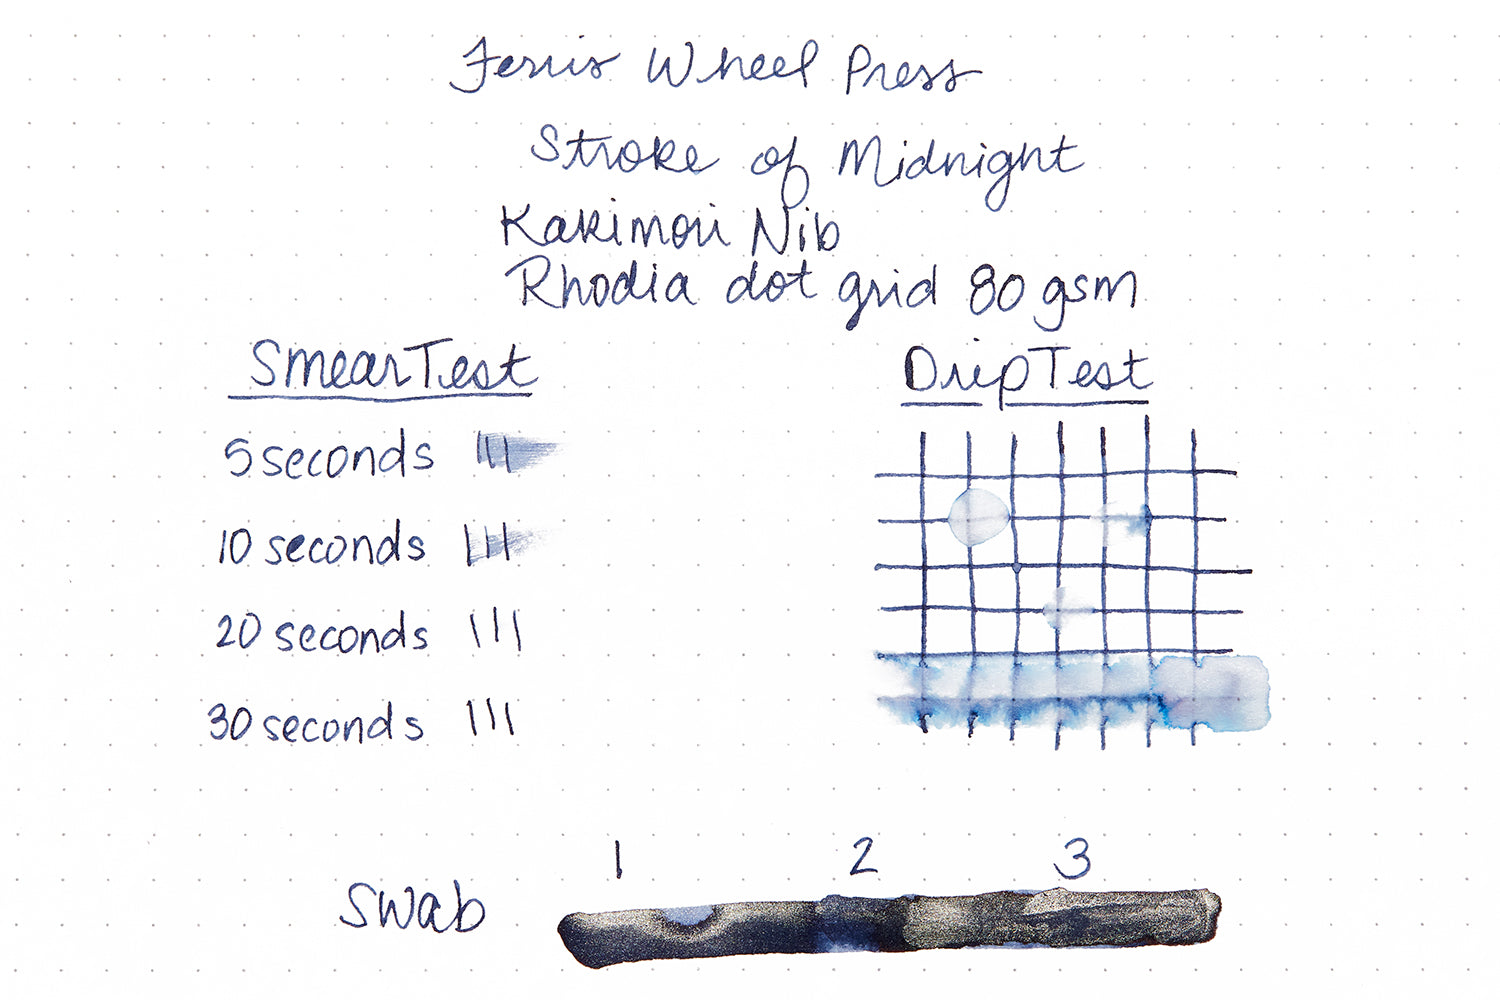 Ferris Wheel Press
Stroke of Midnight
Kakimori Nib
Rhodia dot grid 80 gsm
Smear Test
Drip Test
5 seconds
10 seconds
20 seconds
30 seconds
1 2 3
Swab